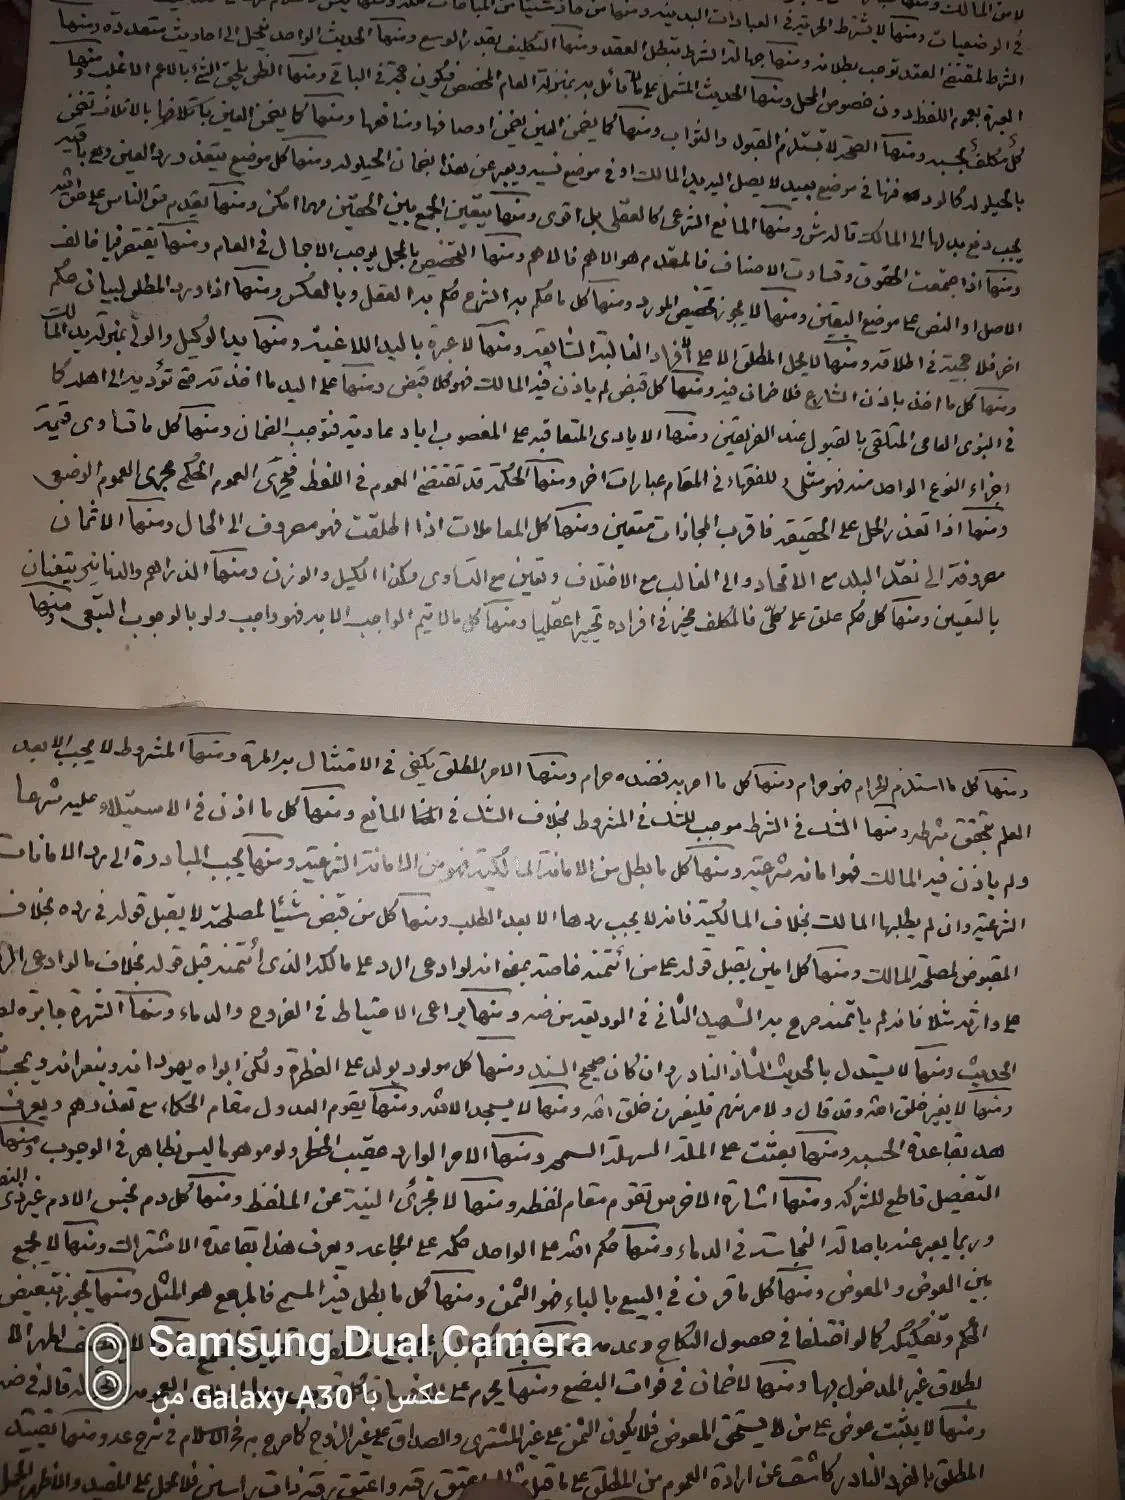 في الوضعيات ومنها لا يشترط الحرية في العبادات البدنية ومنها من حاز شيئا من المباحات
الشرط لمقتضى العقد توجب بطلانه ومنها جهالة الشرط تبطل العقد ومنها التكليف بقدر الوسع ومنها الحديث الواحد ينحل الى احاديث متعدده ومنها
العبرة بعموم اللفظ دون خصوص المحل ومنها الحديث المشتمل على ما لا قائل به بمنزلة العام المخصص فيكون حجة في الباقي ومنها الظن يلحق الشئ بالاعم الاغلب ومنها
كل مكلف بحسبه ومنها الصحة لا تستلزم القبول والثواب ومنها كما يضمن العين يضمن اوصافها ومنافعها ومنها كما يضمن العين باتلافها بالاتلاف تضمن
بالحيلولة كما لو دفنها في موضع بعيد لا يصل اليه يد المالك او في موضع نسيه ويعبر عن هذا بضمان الحيلولة ومنها كل موضع يتعذر رد العين وهو باقية
يجب دفع بدلها الى المالك قاله ش ومنها المانع الشرعي كالعقلي بل اقوى ومنها يتعين الجمع بين الحقين مهما امكن ومنها يقدم حق الناس على حق الله
ومنها اذا اجتمعت الحقوق وتساوت الاصناف فالمقدم هو الاهم فالاهم ومنها التخصيص بالمجمل يوجب الاجمال في العام ومنها يقتصر فيما خالف
الاصل او النص على موضع اليقين ومنها لا يجوز تخصيص المورد ومنها كل ما حكم به الشرع حكم به العقل وبالعكس ومنها اذا ورد المطلق لبيان حكم
اخر فلا حجية في اطلاقه ومنها لا يحمل المطلق الا على الافراد الغالبة الشايعة ومنها لا عبرة باليد اللاغية ومنها يد الوكيل والولي بمنزلة يد المالك
ومنها كل ما اخذ باذن الشارع فلا ضمان فيه ومنها كل قبض لم ياذن فيه المالك فهو كلا قبض ومنها على اليد ما اخذت حتى تؤديه الى اهله كما
في النبوي العامي المتلقى بالقبول عند الفريقين ومنها الايادي المتعاقبة على المغصوب اياد عادية فتوجب الضمان ومنها كل ما تساوى قيمة
اجزاء النوع الواحد منه فهو مثلي وللفقهاء في المقام عبارات اخر ومنها الحكمة قد تقتضى العموم في اللفظ فيجرى العموم الحكمي مجرى العموم الوضعي
ومنها اذا تعذر الحمل على الحقيقة فاقرب المجازات متعين ومنها كل المعاملات اذا اطلقت فهو مصروف الى الحال ومنها الاثمان
مصروفة الى نقد البلد مع الاتحاد والى الغالب مع الاختلاف وتعين مع التساوى وكذا الكيل والوزن ومنها الدراهم والدنانير يتعينان
بالتعيين ومنها كل حكم علق على كلي فالمكلف مخير في افراده تخييرا عقليا ومنها كل ما لا يتم الواجب الا به فهو واجب ولو بالوجوب التبعي ومنها
ومنها كل ما استلزم الحرام فهو حرام ومنها كل ما امر به فضده حرام ومنها الامر المطلق يكفي في الامتثال به المرة ومنها المشروط لا يجب الا بعد
العلم بتحقق شرطه ومنها الشك في الشرط موجب للشك في المشروط بخلاف الشك في المانع ومنها كل ما اذن في الاستيلاء عليه شرعا
ولم ياذن فيه المالك فهو امانة شرعية ومنها كل ما بطل من الامانة المالكية فهو من الامانة الشرعية ومنها يجب المبادرة الى رد الامانات
الشرعية وان لم يطلبها المالك بخلاف المالكية فانه لا يجب ردها الا بعد الطلب ومنها كل من قبض شيئا لمصلحته لا يقبل قوله في رده بخلاف
المقبوض لمصلحة المالك ومنها كل امين يقبل قوله على من ائتمنه خاصة بمعنى انه لو ادعى الرد على مالكه الذى ائتمنه قبل قوله بخلاف ما لو ادعى
على وارثه مثلا فانه لم ياتمنه صرح به الشهيد الثاني في الوديعة من ضه ومنها يراعى الاحتياط في الفروج والدماء ومنها الشهرة جابرة
الحديث ومنها لا يستدل بالحديث الشاذ النادر وان كان صحيح السند ومنها كل مولود يولد على الفطرة ولكن ابواه يهودانه وينصرانه ويمجسانه
ومنها لا يغير خلق الله وقد قال ولامرنهم فليغيرن خلق الله ومنها لا يسجد الا لله ومنها يقوم العدول مقام الحكام مع تعذرهم ويعرف
هذه بقاعدة الحسبه ومنها بعثت على الملة السهلة السمحه ومنها الامر الوارد عقيب الحظر ولو موهوما ليس بظاهر في الوجوب ومنها
التفصيل قاطع للشركه ومنها اشارة الاخرس تقوم مقام لفظه ومنها لا تجزى النية عن الملفظ ومنها كل دم نجس الا دم غير ذى النفس
وربما يعبر عنه باصالة النجاسة في الدماء ومنها حكم الله على الواحد حكمه على الجماعه ويعرف هذا بقاعدة الاشتراك ومنها لا يجمع
بين العوض والمعوض ومنها كل ما قرن في البيع بالباء فهو الثمن ومنها كل ما بطل فيه المسمى فالمرجع هو المثل ومنها يجوز تبعيض
الحكم وتفكيكه كما لو اختلفا في حصول النكاح وعدمه
لطلاق غير المدخول بها ومنها لا ضمان في فوات البضع ومنها يحرم على
ومنها لا يثبت عوض على من لا يستحق المعوض فلا يكون الثمن على غير المشترى والصداق على غير الزوج كما صرح به فخر الاسلام في شرح عد ومنها تقييد
المطلق بالفرد النادر كاشف عن ارادة العموم من المطلق على ما قبل اعتق رقبة واعتق رقبة ذات راسين فلا يحمل على المقيد
Samsung Dual Camera
عكس با Galaxy A30 من